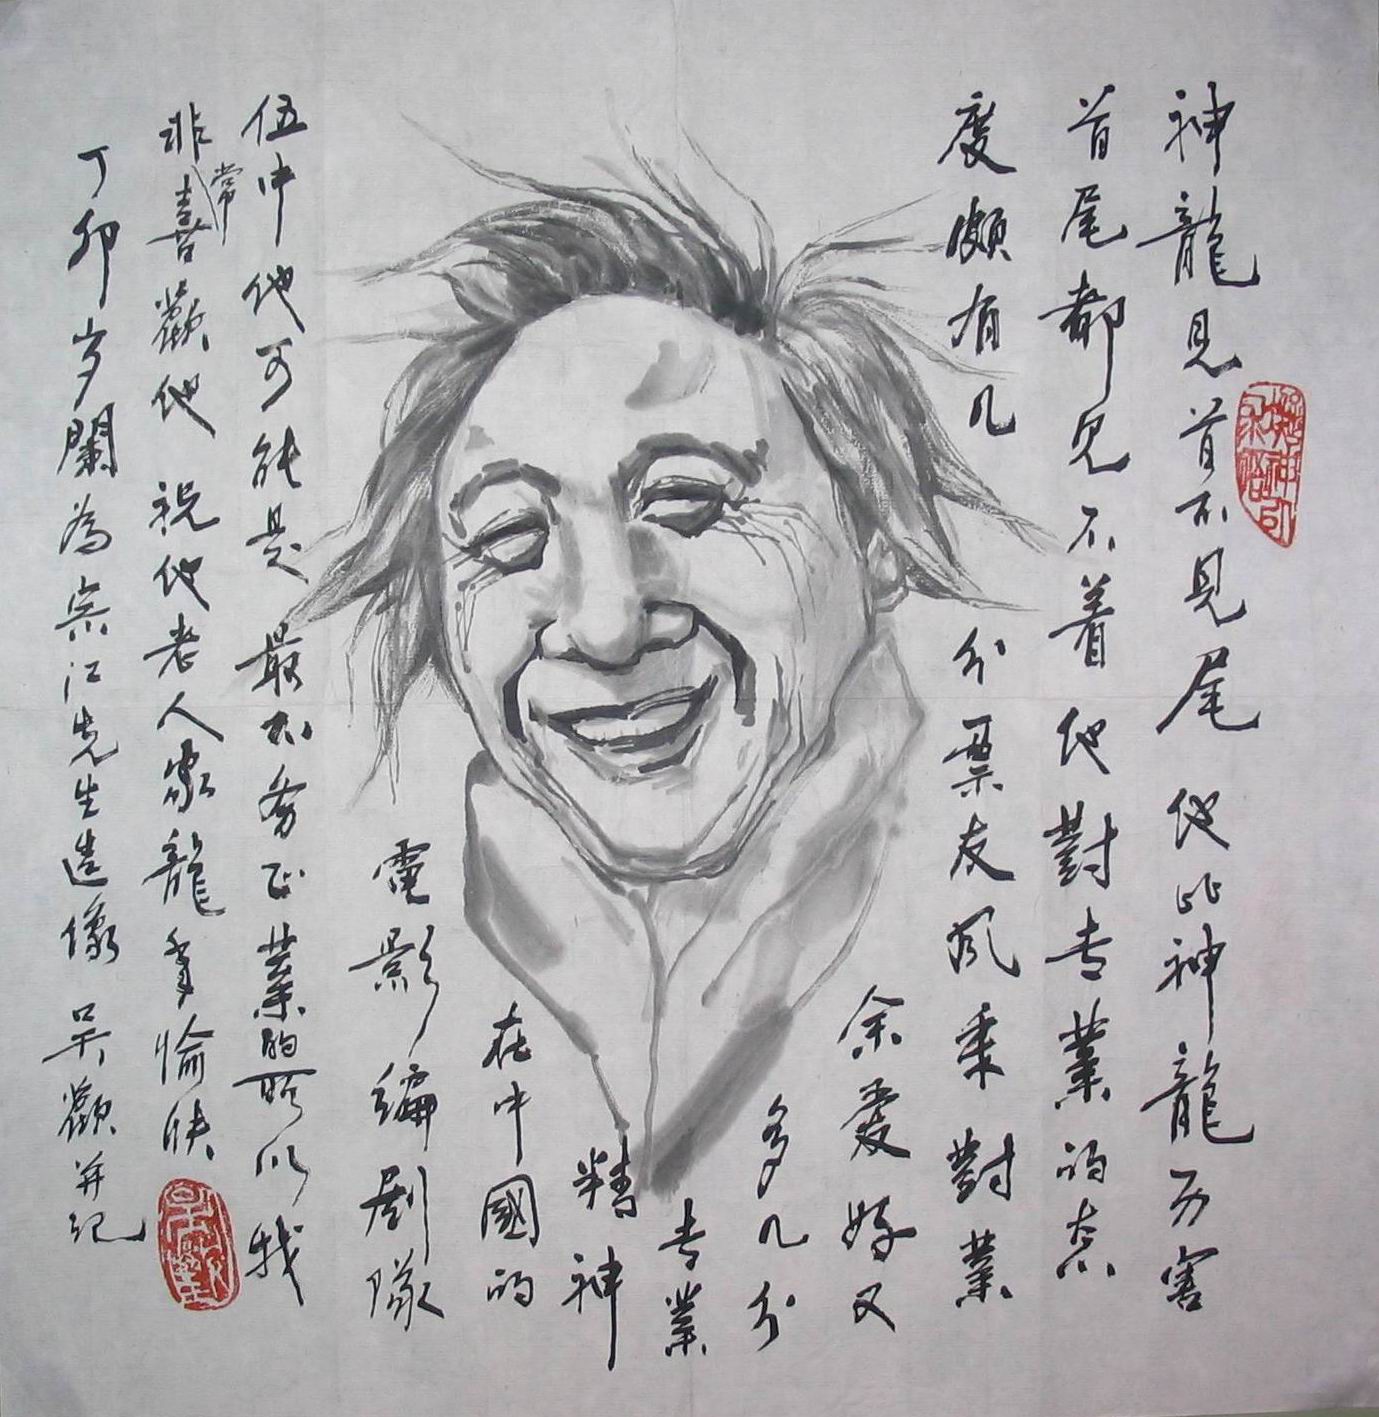 神龍见首不见尾 他比神龍厉害
首尾都见不着他對专業的态
度颇有几分票友风采對業
余爱好又
多几分
专業
精神
在中國的
電影编剧隊
伍中他可能是最不务正業的所以我
非常喜歡他祝他老人家龍年愉快
丁卯岁闌為宗江先生造像 吴歡并记
吴歡